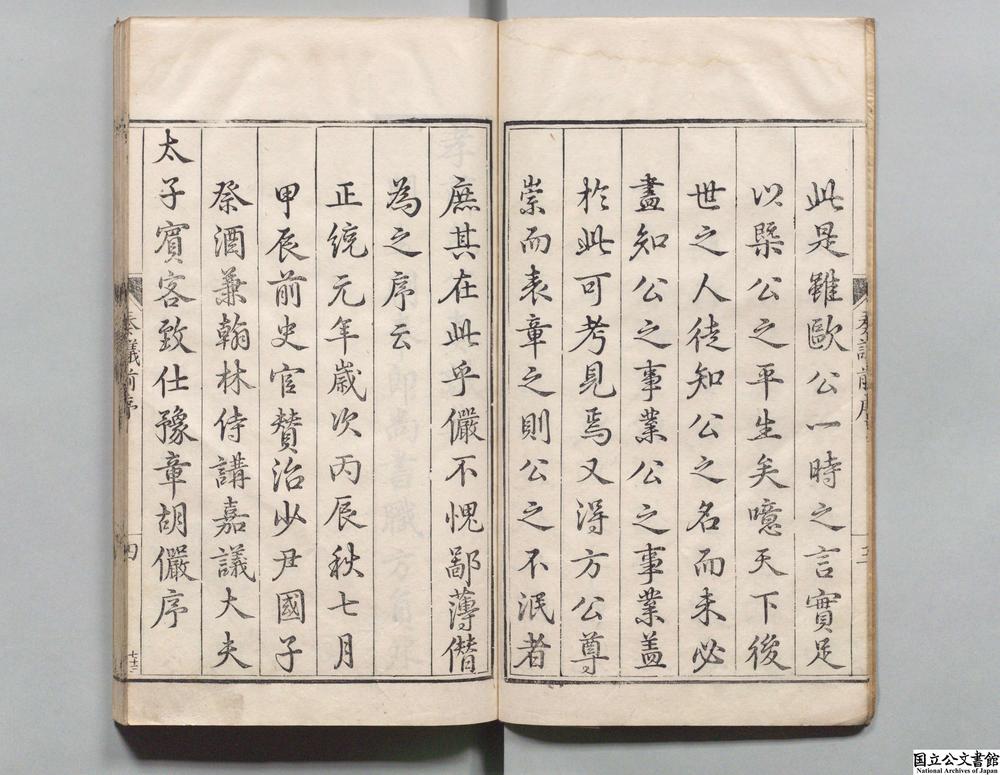 此是雖歐公一時之言實足
以槩公之平生矣噫天下後
世之人徒知公之名而未必
盡知公之事業公之事業盖
於此可考見焉又得方公尊
崇而表章之則公之不泯者
庶其在此乎儼不愧鄙薄僣
為之序云
正統元年歲次丙辰秋七月
甲辰前史官賛治少尹國子
祭酒兼翰林侍講嘉議大夫
太子賓客致仕豫章胡儼序
奏議前序
四
国立公文書館
National Archives of Japan